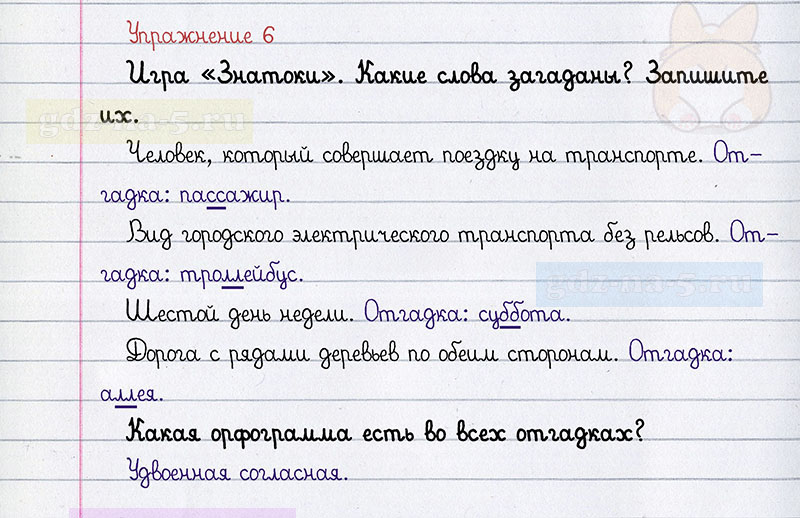 Упражнение 6
Игра «Знатоки». Какие слова загаданы? Запишите
их.
gdz-na-5.ru
Человек, который совершает поездку на транспорте. От-
гадка: пассажир.
Вид городского электрического транспорта без рельсов. От-
гадка: троллейбус.
gdz-na-5.ru
Шестой день недели. Отгадка: суббота.
Дорога с рядами деревьев по обеим сторонам. Отгадка:
аллея.
Какая орфограмма есть во всех отгадках?
Удвоенная согласная.